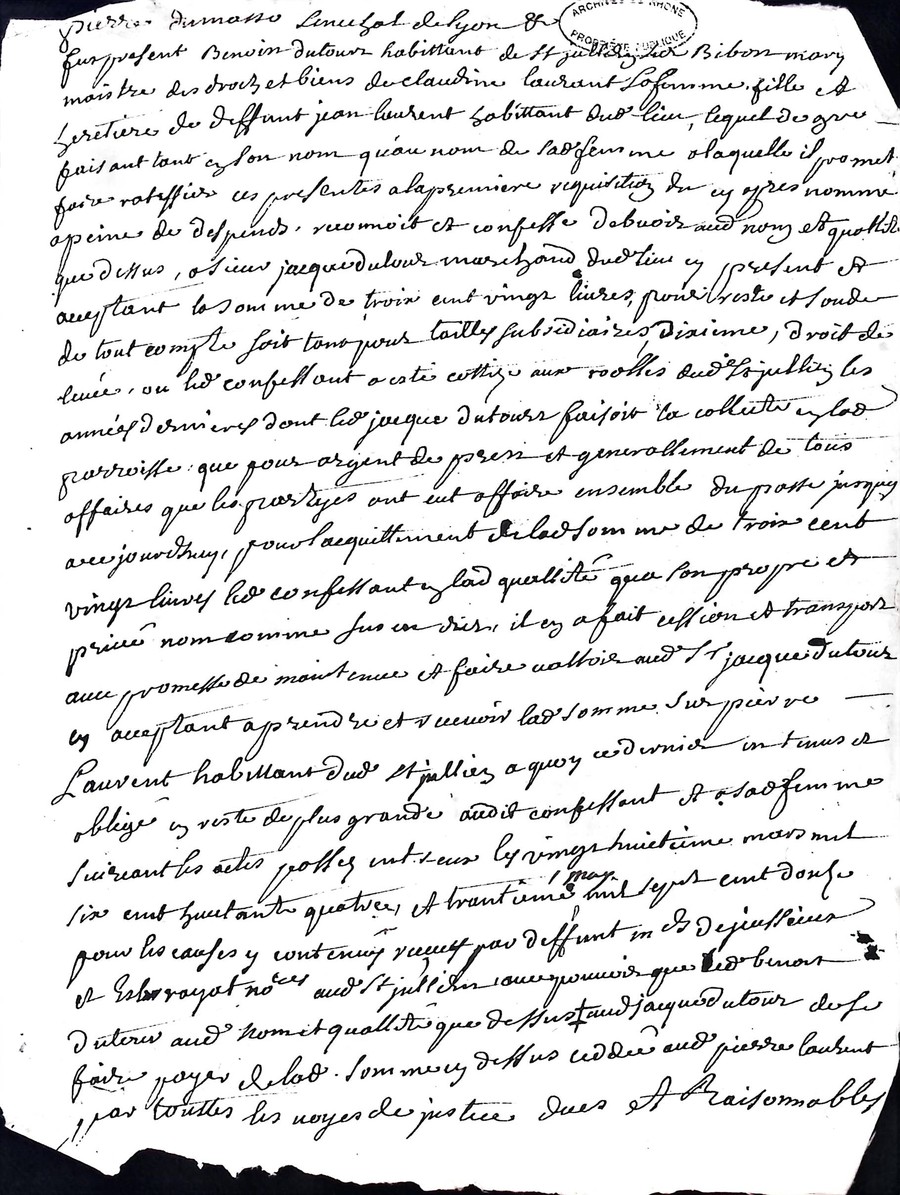 pierre dumasso senechal de lyon &
ARCHIVES DU RHONE
PROPRIÉTÉ PUBLIQUE
fut present Benoin dutour habittant de st jullien sur Bibost mary
maistre des droitz et biens de claudine laurant sa femme, fille et
heretiere de deffunt jean laurent habittant dud lieu, lequel de gre
faisant tant en son nom qu'au nom de sad femme a laquelle il promet
faire rateffier ces presentes a la premiere requisition du cy apres nomme
a peine de despends, reconnoit et confesse debvoir aud nom et quallité
que dessus, a sieur jacque dutour marchand dud lieu cy present et
acceptant la somme de troix cent vingt livres, pour reste et soude
de tout compte soit tant pour tailles subsidiaires, dixieme, droit de
levée, ou led confessant a esté cottizé aux roolles dud st jullien les
années dernieres dont led jacque dutour faisoit la collecte en lad
parroisse que pour argent de prest et generallement de tous
affaires que les partyes ont eut affaire ensemble du passé jusques
a ce jourdhuy, pour lacquittement de lad somme de troix cent
vingt livres led confessant en lad quallité qua son propre et
privé nom comme sus en dict, il en a fait cession et transport
avec promesse de maintenue et faire valloir aud Sr jacque dutour
cy acceptant a prendre et recevoir lad somme sur pierre
Laurent habittant dud st jullien a quoy ce dernier est tenus et
obligé en reste de plus grande audit confessant et a sad femme
suivant les actes passez entreux les vingt huitieme mars mil
six cent huitante quatre, et trantieme may mil sept cent douse
pour les causes y contenues receus par deffunt me dejussieux
et rayat nores aud st jullien avec pouvoir que led benoit
dutour aud nom et quallité que dessus aud jacque dutour de se
faire payer de lad. somme cy dessus ceddée aud pierre laurent
par touttes les voyes de justice dues et Raisonnables